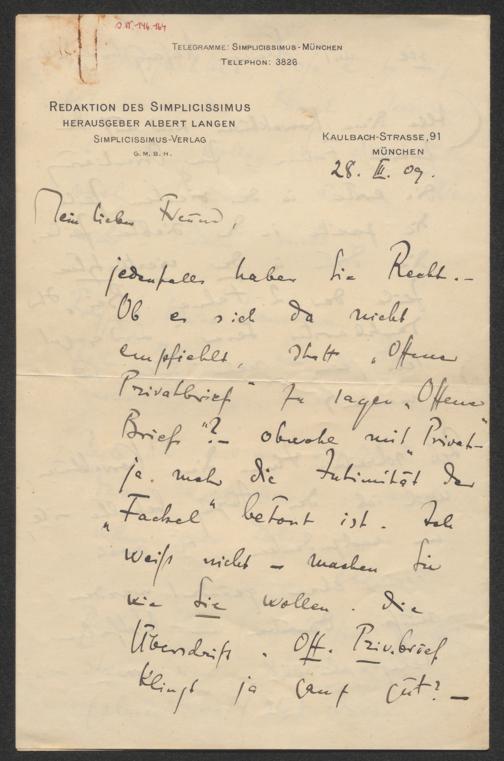 Telegramme: Simplicissimus-München
Telephon: 3826
Redaktion des Simplicissimus
Herausgeber Albert Langen
Simplicissimus-Verlag
G.M.B.H.
Kaulbach-Strasse, 91
München
28. III. 09.
Mein lieber Freund,
jedenfalls haben Sie Recht. –
Ob es sich da nicht
empfiehlt, statt „Offener
Privatbrief" zu sagen „Offener
Brief"? – obwohl mit „Privat-
ja mehr die Intimität der
„Fackel" betont ist. Ich
weiß nicht – machen Sie
wie Sie wollen. Die
Überschrift „Off. Priv.brief
klingt ja ganz gut? –